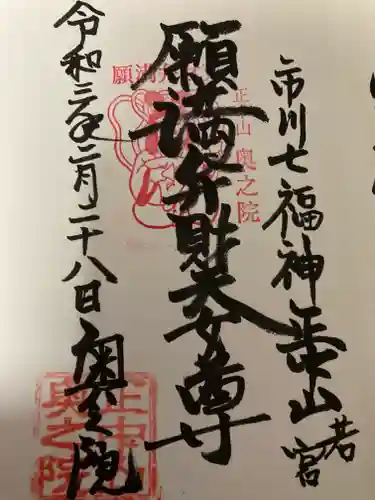 市川七福神 正中山 若宮
願満弁財天女尊
令和三年二月二十八日 奥之院
願満
正中山 奥之院
正中山
奥之院